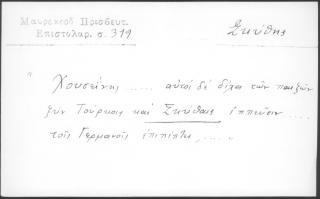 Μαυροκορδ. Πρεσβευτ.
Επιστολαρ. σ. 319
Σκύθης
" Χουσεΐνης ..... αὐτοὶ δὲ δίχα τῶν πεζῶν
ξὺν Τούρκοις καὶ Σκύθαις ἱππεῦσιν ....
τοῖς Γερμανοῖς ἐπιπίπτει .....